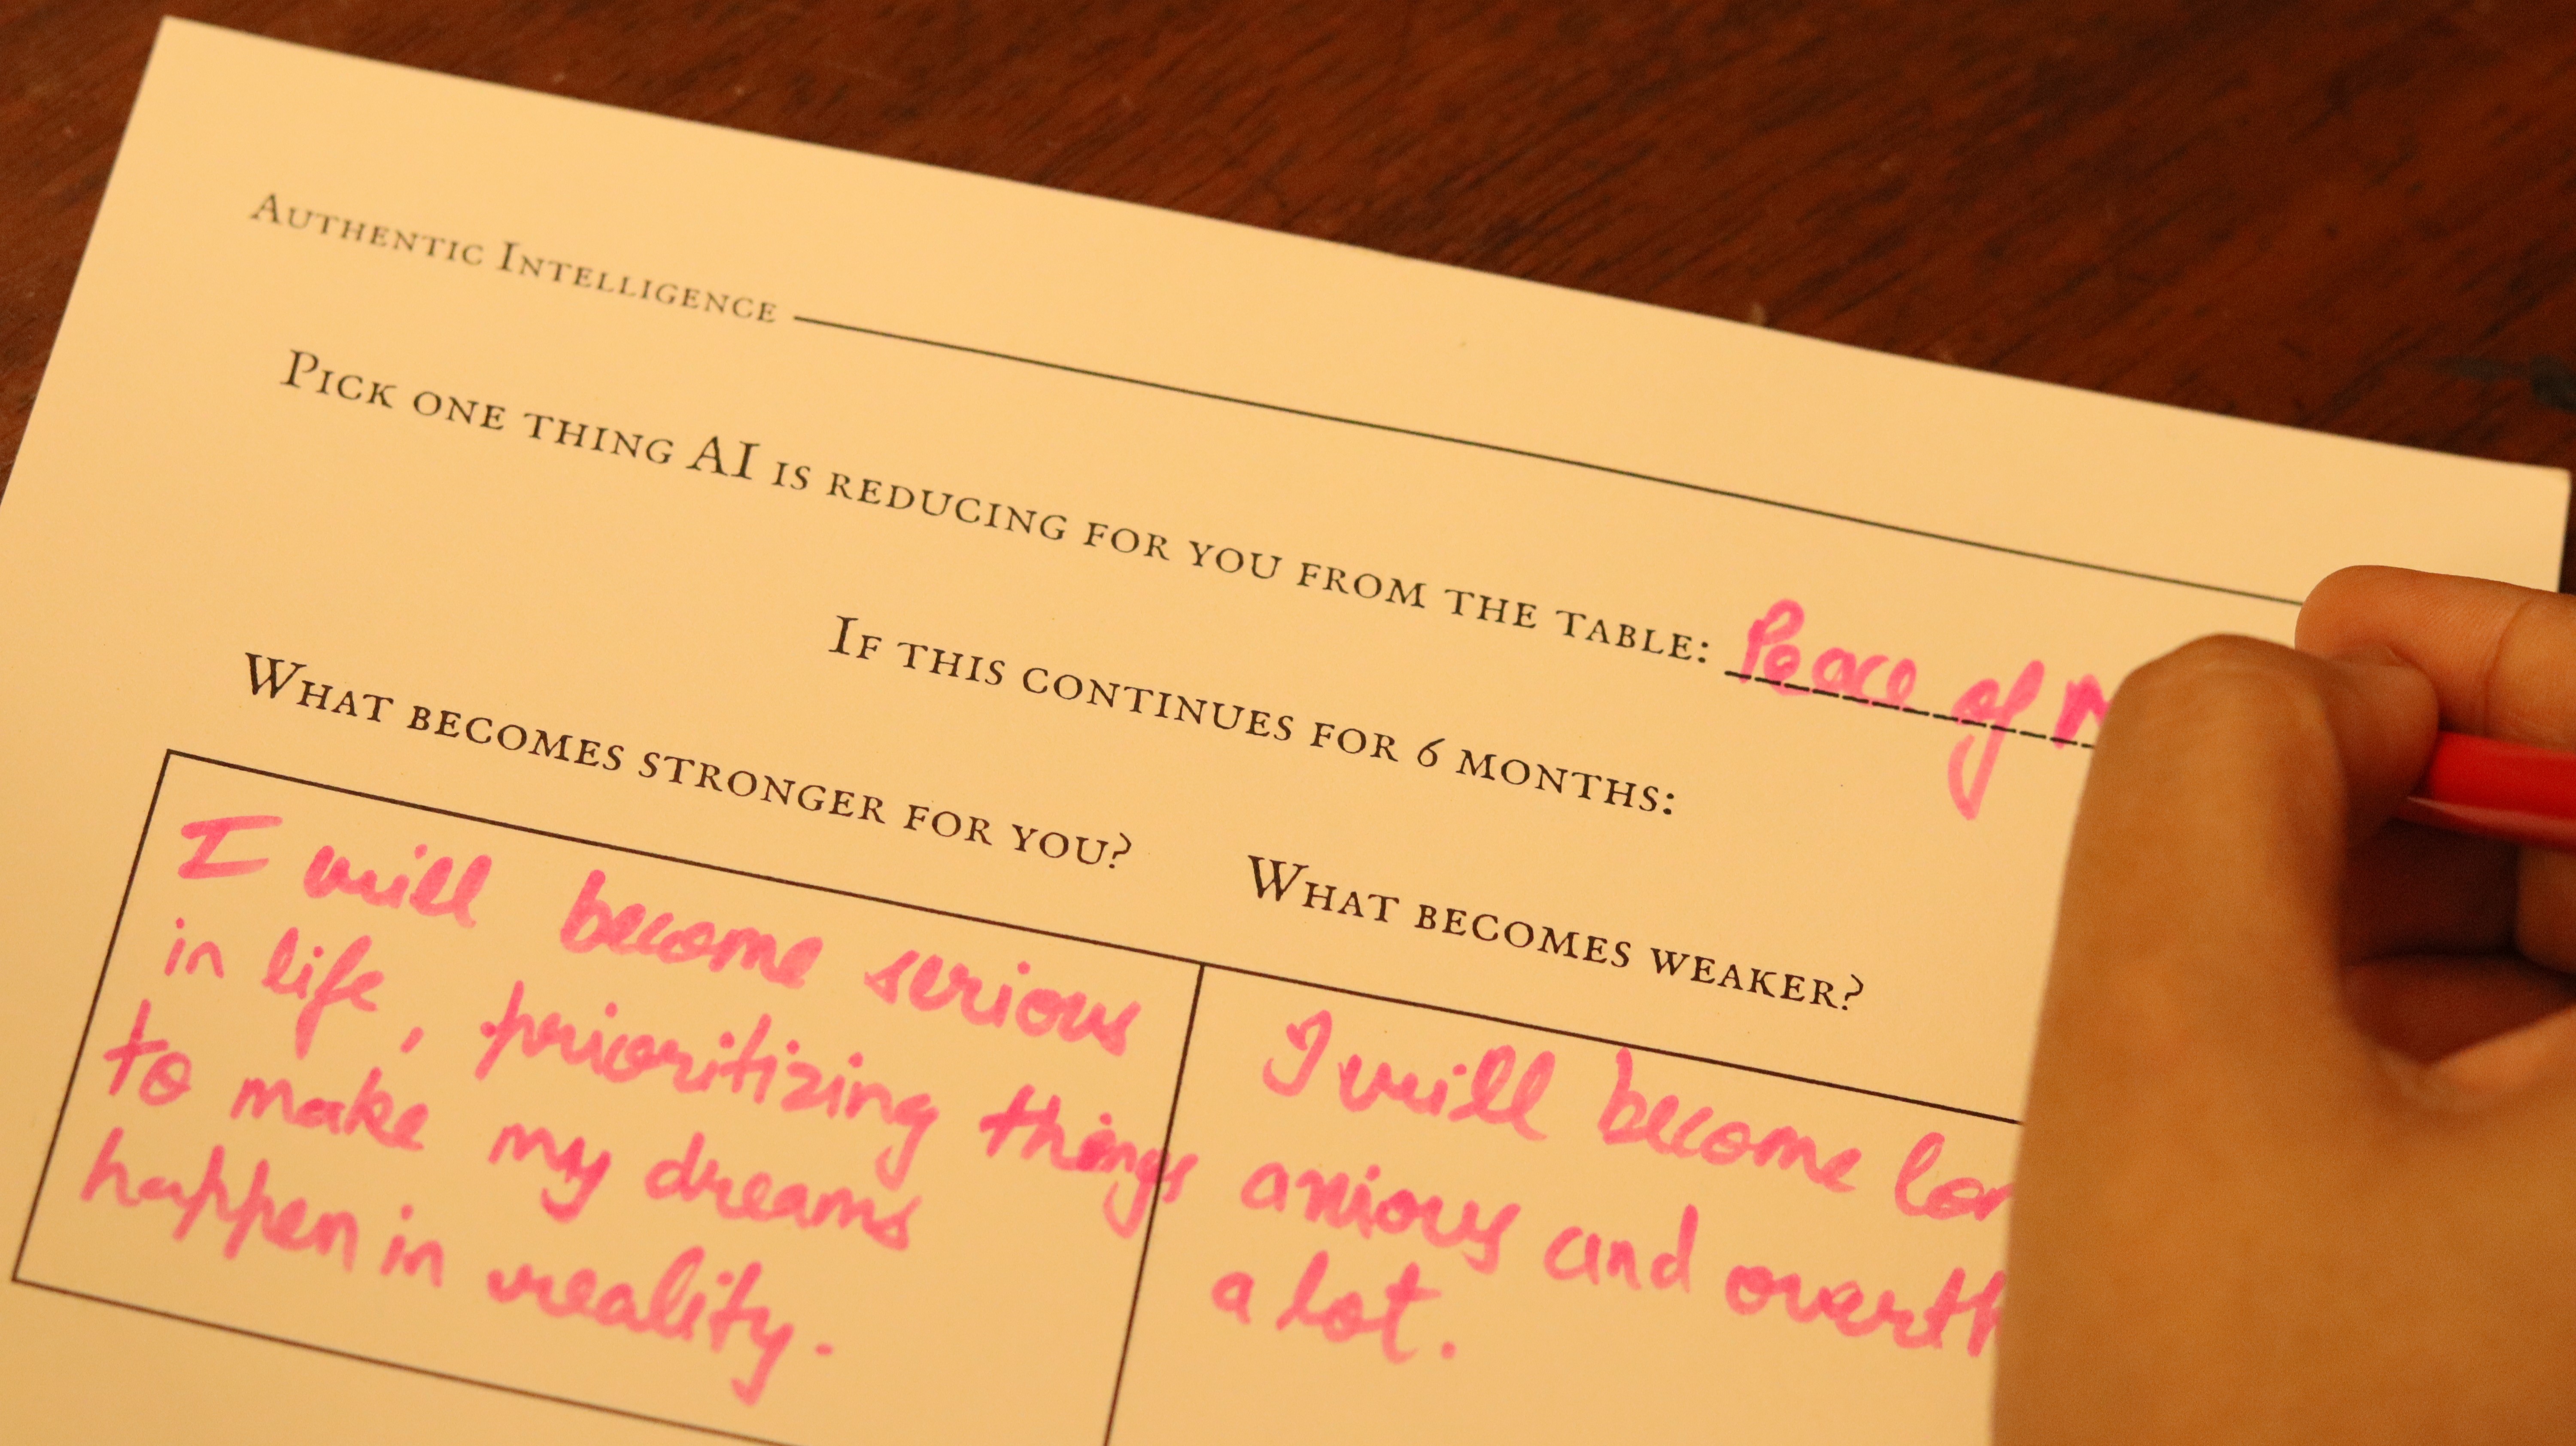 AUTHENTIC INTELLIGENCE
PICK ONE THING AI IS REDUCING FOR YOU FROM THE TABLE: Peace of
IF THIS CONTINUES FOR 6 MONTHS:
WHAT BECOMES STRONGER FOR YOU?
I will become serious
in life, prioritizing things
to make my dreams
happen in reality.
WHAT BECOMES WEAKER?
I will become
anxious and
a lot.